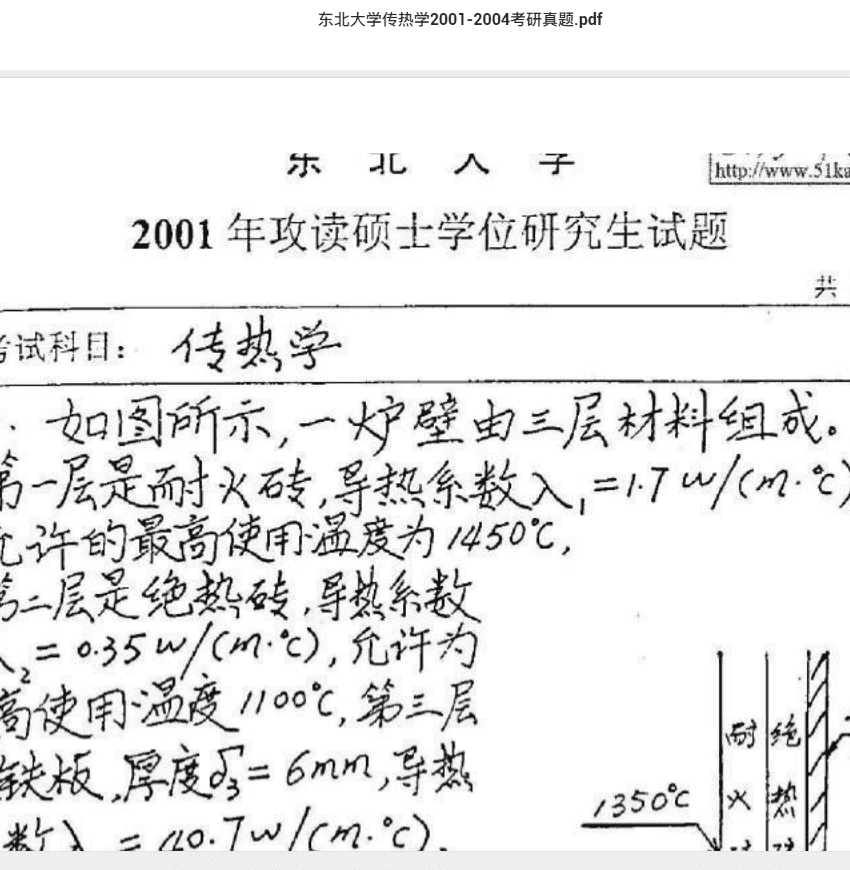 东北大学传热学2001-2004考研真题.pdf
东 北 大 学
http://www.51ka
2001 年攻读硕士学位研究生试题
共
考试科目： 传热学
如图所示,一炉壁由三层材料组成。
第一层是耐火砖,导热系数λ₁=1.7 w/(m·℃)
允许的最高使用温度为1450℃,
第二层是绝热砖,导热系数
λ₂=0.35w/(m·℃),允许为
高使用温度1100℃,第三层
铁板,厚度δ₃=6mm,导热
数λ =40.7w/(m·℃).
1350℃
耐火
绝热